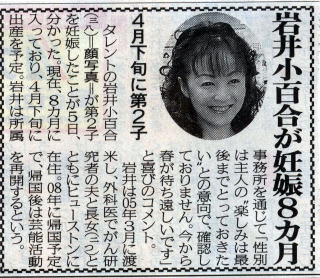 岩井小百合が妊娠8カ月
4月下旬に第2子
タレントの岩井小百合
(三八)=顔写真=が第2子
を妊娠したことが5日、
分かった。現在、8カ月に
入っており、4月下旬に
出産を予定。岩井は所属
事務所を通じて「性別
は主人の〝楽しみは最
後までとっておきた
い〟との意向で、確認し
ておりません。今から
春が待ち遠しいです」
と喜びのコメント。
岩井は05年3月に渡
米し、外科医でがん研
究者の夫と長女(二つ)と
ともにヒューストンに
在住。08年に帰国予定
で、帰国後は芸能活動
を再開するという。